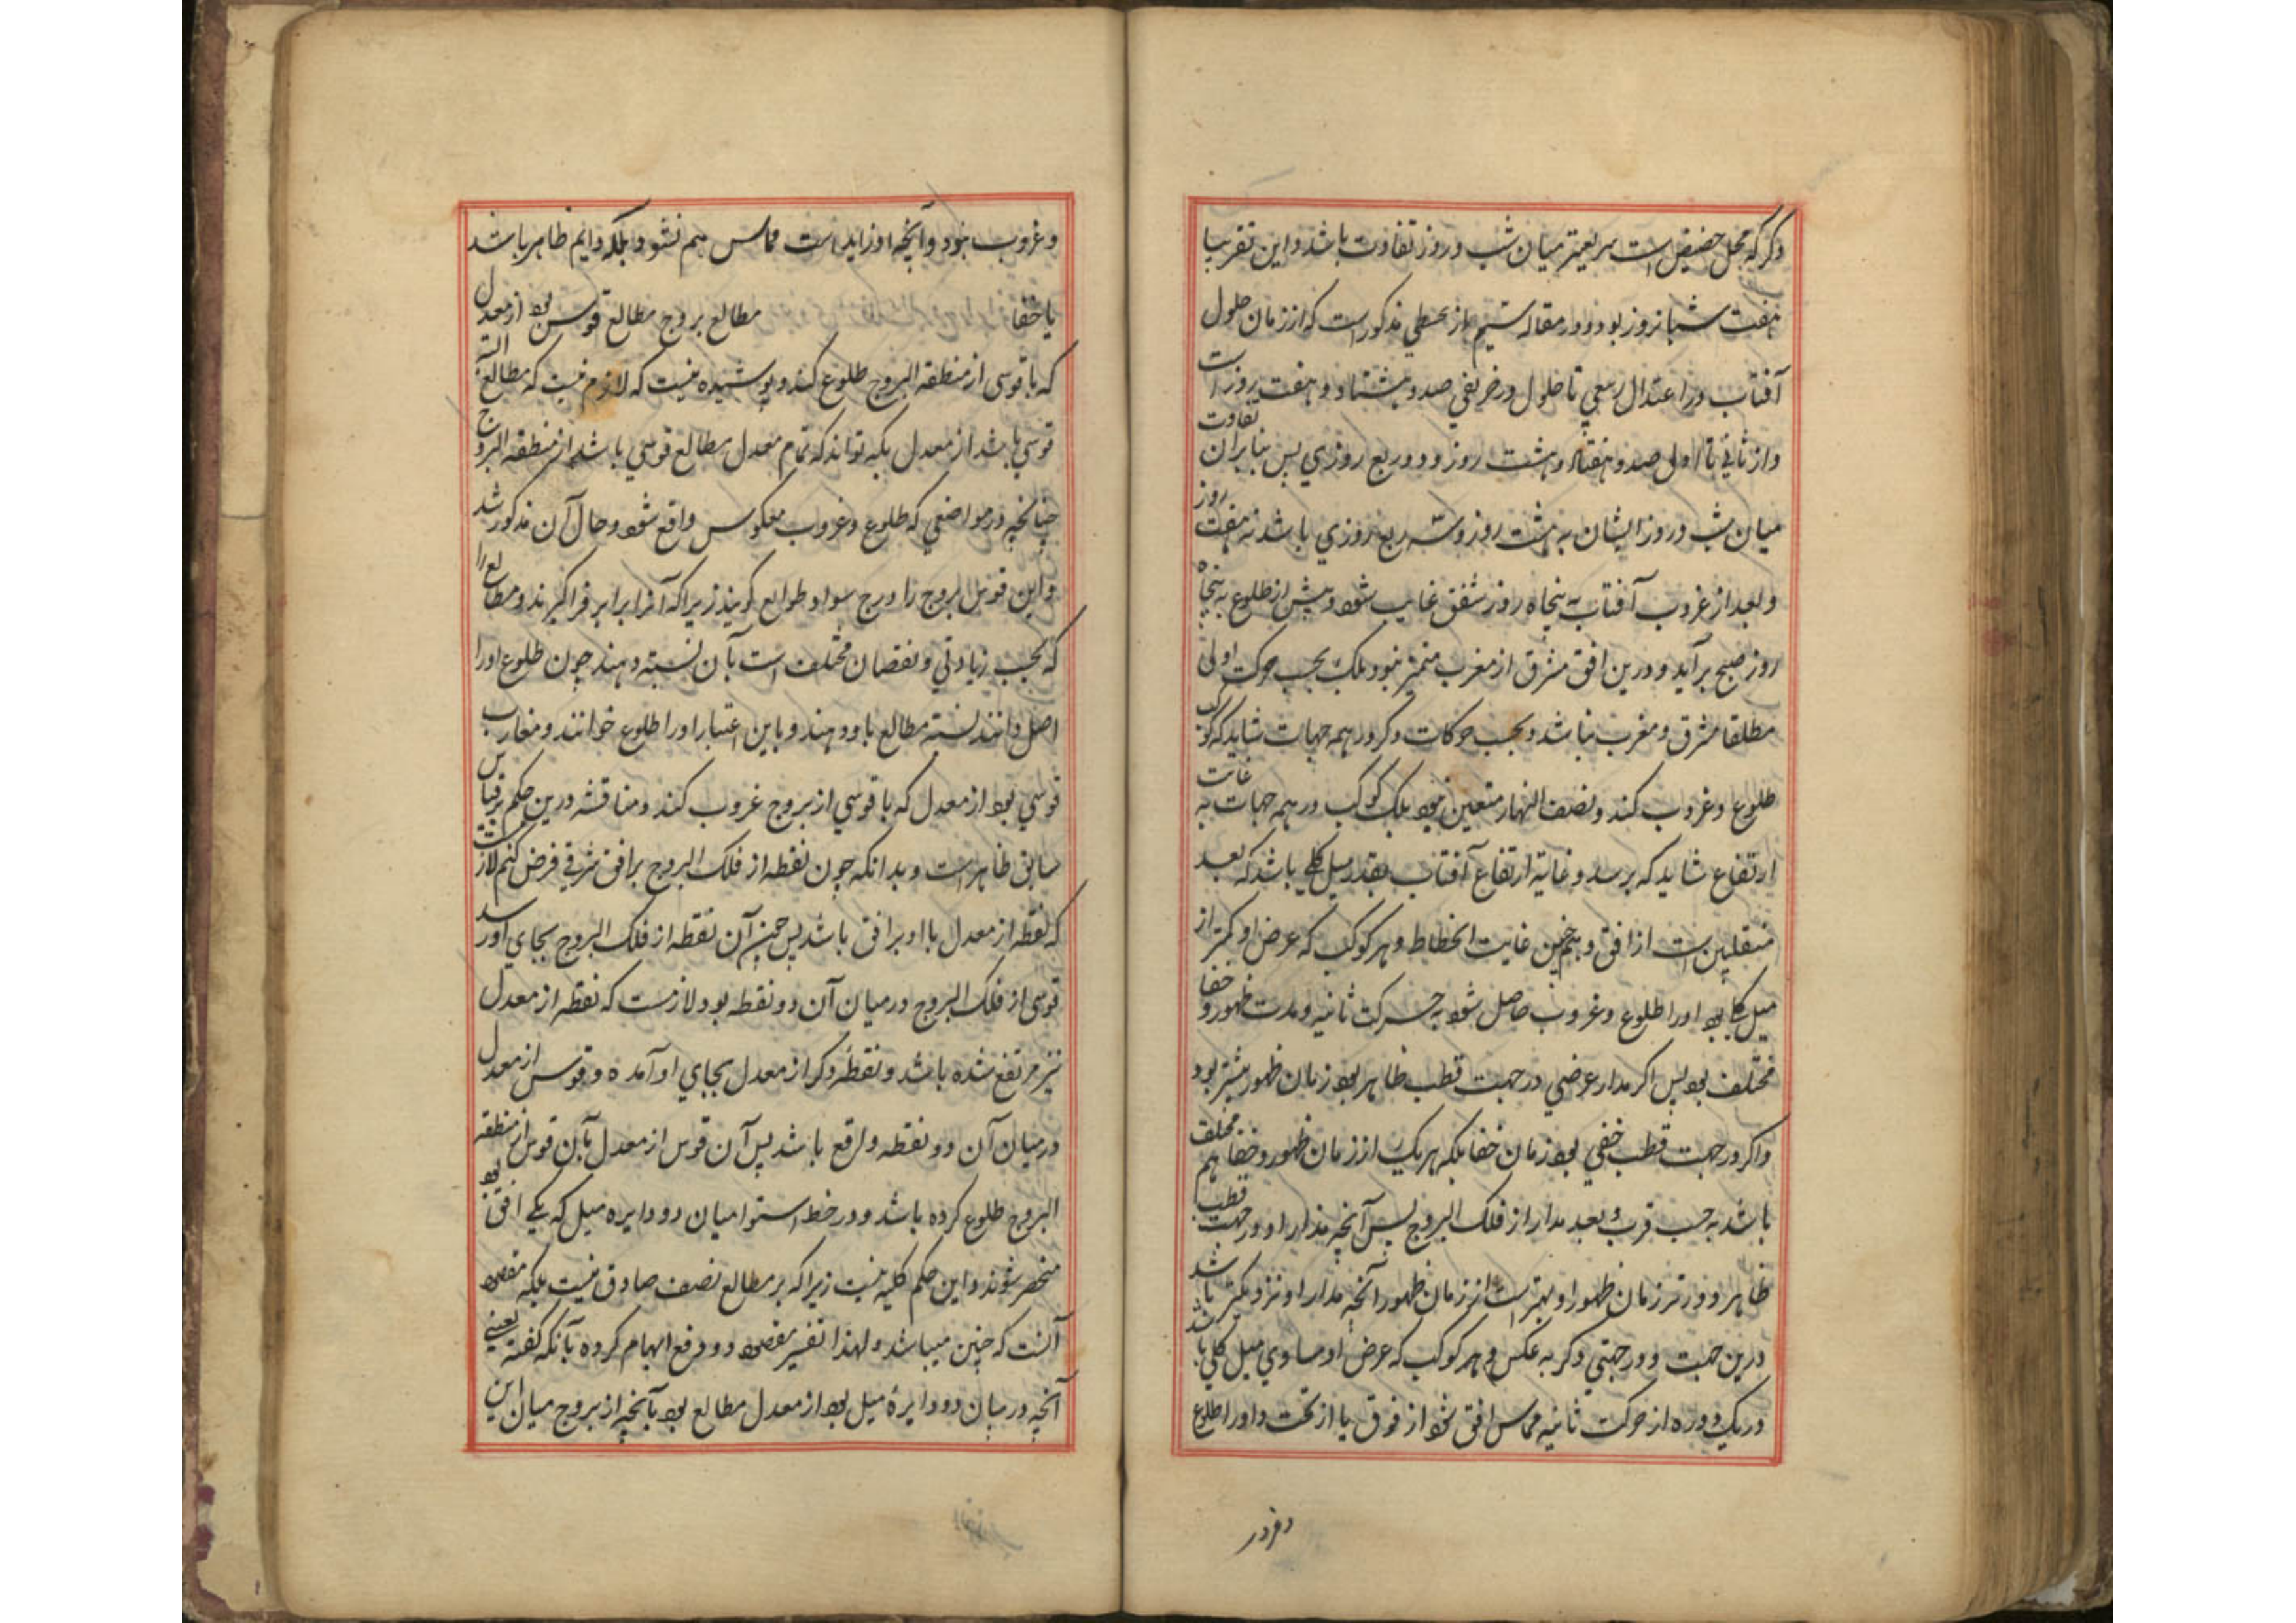 دکر که محل حضیض است سریعتر میان شب و روز تفاوت باشد و این تقریبا
هفت شبانروز بود و در مقاله سیم از مجسطی مذکور است که از زمان حلول
آفتاب در اعتدال ربیعی تا حلول در خریفی صد و هشتاد و هفت روز است
و از ثانی تا اول صد و هفتاد و هشت روز و دو ربع روزی پس بنابران تفاوت
میان شب و روز ایشان به هشت روز و سه ربع روزی باشد نه هفت روز
و بعد از غروب آفتاب به پنجاه روز شفق غایب شود و پیش از طلوع به پنجاه
روز صبح برآید و درین افق مشرق از مغرب متمیز نبود بلک بحسب حرکت اولی
مطلقا مشرق و مغرب نباشد و بحسب حرکات دکر در همه جهات شاید که کوکب
طلوع و غروب کند و نصف النهار متعین نبود بلک کوکب در همه جهات به غایت
ارتفاع شاید که برسد و غایة ارتفاع آفتاب بقدر میل کلی باشد که بعد
منقلبین است از افق و همچنین غایت انحطاط و هر کوکب که عرض او کمتر از
میل کلی بود او را طلوع و غروب حاصل شود به حرکت ثانیه و مدت ظهور و خفا
مختلف بود پس اکر مدار عرضی در جهت قطب ظاهر بود زمان ظهور بیشتر بود
و اکر در جهت قطب خفی بود زمان خفا بلکه هر یک از زمان ظهور و خفا هم مختلف
باشد به حسب قرب و بعد مدار از فلک البروج پس آنچه مدار او در جهت قطب
ظاهر و دورتر زمان ظهور او بیشتر است از زمان ظهور آنچه مدار او نزدیکتر باشد
درین جهت و در جهتی دکر به عکس و هر کوکب که عرض او مساوی میل کلی باشد
در یک دوره از حرکت ثانیه مماس افق شود از فوق یا از تحت و او را طلوع
و غروب نبود و آنچه او زاید است مماس هم نشود بلکه دایم ظاهر باشد
یا خفا مطالع بروج مطالع قوسی بود از معدل
که با قوسی از منطقة البروج طلوع کند و پوشیده نیست که لازم نیست که مطالع البته
قوسی باشد از معدل بلکه تواند که تمام معدل مطالع قوسی باشد از منطقه البروج
چنانچه در مواضعی که طلوع و غروب معکوس واقع شود و حال آن مذکور شد
و این قوس بروج را درج سوا و طوالع کویند زیرا که آنرا برابر فراکیرند و مطالع را
که بحسب زیادتی و نقصان مختلف است بآن نسبه دهند چون طلوع او را
اصل دانند نسبه مطالع باو دهند و باین اعتبار او را طلوع خوانند و مغارب
قوسی بود از معدل که با قوسی از بروج غروب کند و مناقشه درین حکم بر قیاس
سابق ظاهر است و بدانکه چون نقطه از فلک البروج بر افق شرقی فرض کنم لازمست
که نقطه از معدل با او بر افق باشد پس چون آن نقطه از فلک البروج بجای او رسد
قوسی از فلک البروج در میان آن دو نقطه بود لازمست که نقطه از معدل
نیز مرتفع شده باشد و نقطهٔ دکر از معدل بجای او آمده و قوس از معدل
در میان آن دو نقطه واقع باشد پس آن قوس از معدل بآن قوس از منطقه
البروج طلوع کرده باشد و در خط استوا میان دو دایره میل که یکی افق بود
منحصر شوند و این حکم کلیه نیست زیرا که بر مطالع نصف صادق نیست بلکه مقصود
آنست که چنین میباشد و لهذا تفسیر مقصود و دفع ابهام کرده بآنکه کفته یعنی
آنچه در میان دو دایرهٔ میل بود از معدل مطالع بود بآنچه از بروج میان این